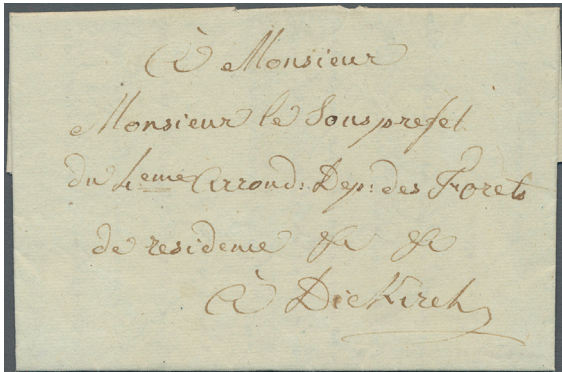 À Monsieur
Monsieur le Sousprefet
du 4eme Arrond: Dep: des Forets
de residence &c &c
à Diekirch